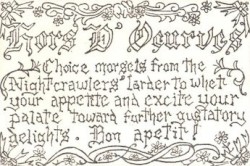 Hors D'Oeurves
Choice morsels from the
Nightcrawlers' larder to whet
your appetite and excite your
palate toward further gustatory
delights. Bon apetit!